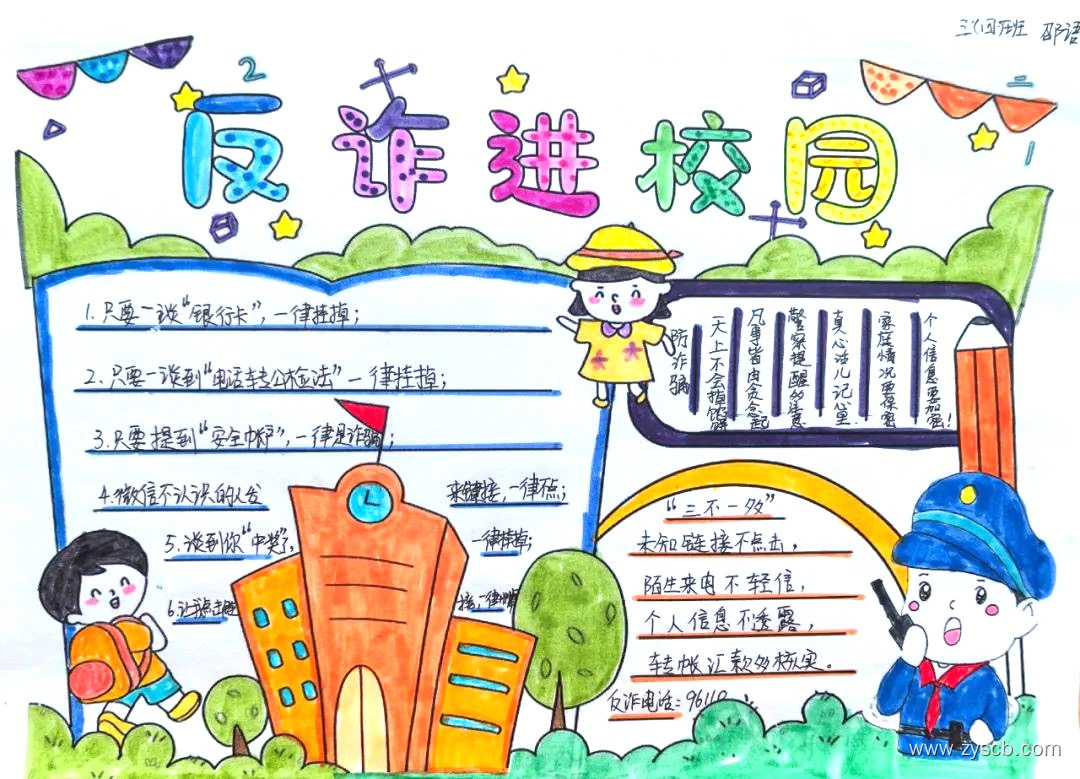 2
反诈进校园
1. 只要一谈“银行卡”，一律挂掉；
2. 只要一谈到“电话转公检法”一律挂掉；
3. 只要提到“安全帐户”，一律是诈骗；
4. 微信不认识的人发来链接，一律不点；
5. 谈到你“中奖了， 一律挂掉；
防诈骗
天上不会掉馅饼
凡事皆由贪念起
警察提醒多注意
真心话儿记心里
家庭情况要保密
个人信息要加密！
“三不一多”
未知链接不点击，
陌生来电不轻信，
个人信息不透露，
转帐汇款多核实。
反诈电话：96110
www.zyscb.com